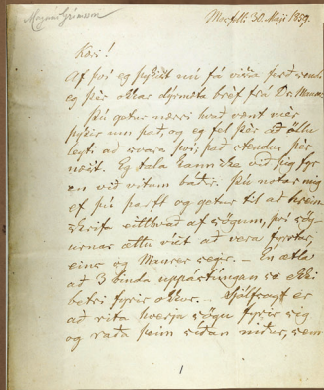 Magnús Grímsson
Mosfelli 30. Maji 1859.
Kæri!
Af því eg þykist nú fá vissa ferð sendi
eg þér okkar dýrmæta bréf frá Dr. Maurer.
Þú getur nærri hvað vænt mér
þykir um það, og eg fel þér að öllu
leyti að svara því; það stendur þér
næst. Eg tala kannske við þig fyr
en við vitum báðir. Þú notar mig
ef þú þarft og getur til að hrein-
skrifa eitthvað af sögum, því sög-
urnar ættu víst að vera fyrstar,
eins og Maurer segir. – En ætla
að 3 binda uppástúngan sé ekki
betri fyrir okkur. – Sjálfsagt er
að rita hverja sögu fyrir sig
og raða þeim síðan niður, sem
1